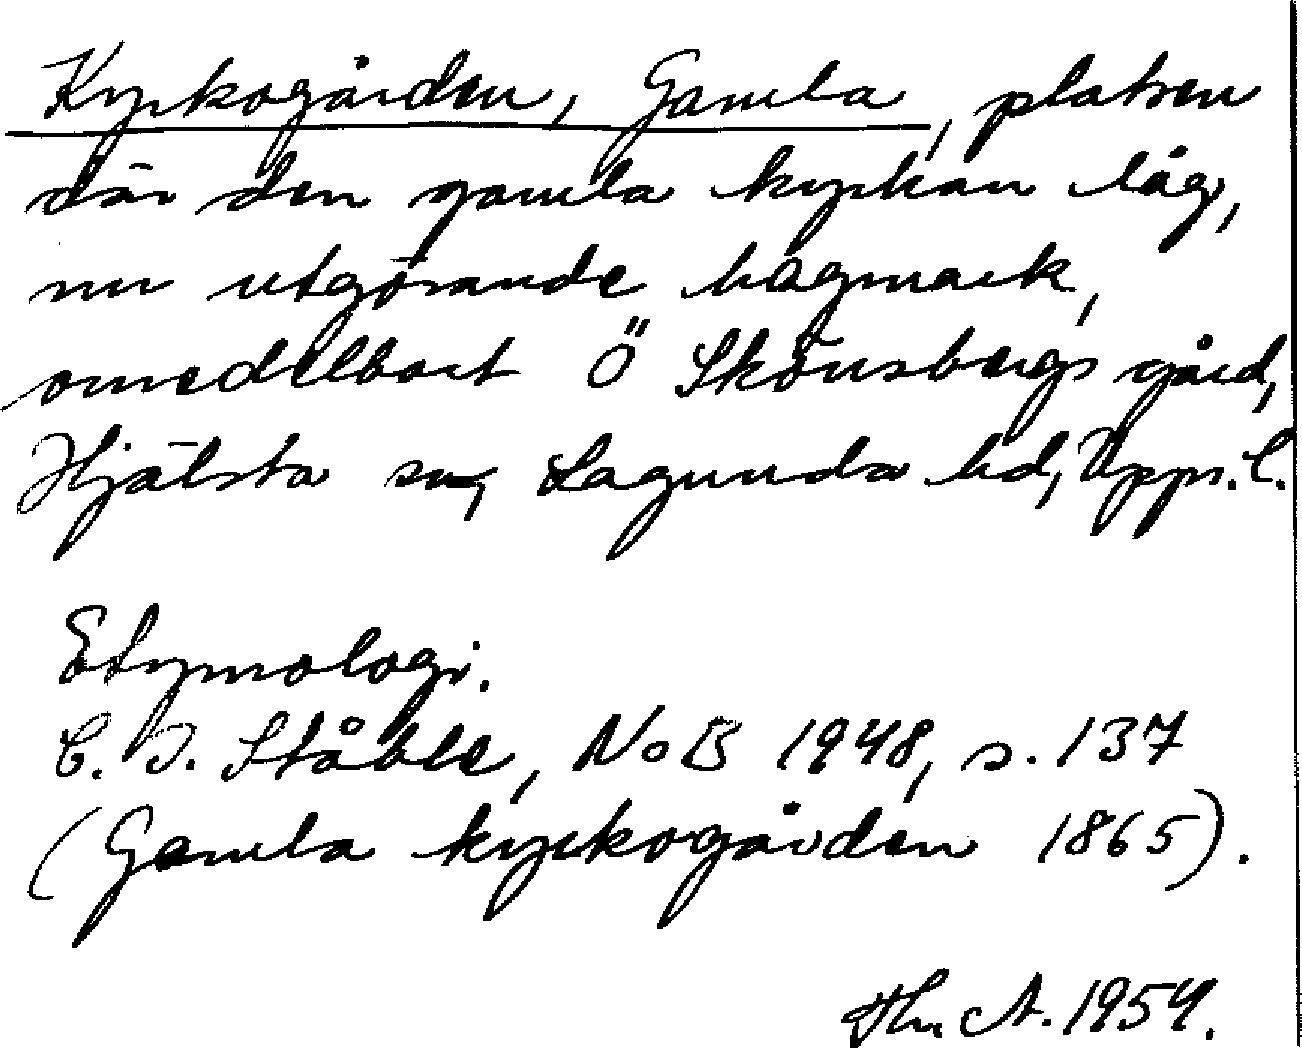 Kyrkogården, Gamla, platsen
där den gamla kyrkan låg,
nu utgörande hagmark,
omedelbart Ö Skönsbergs gård,
Hjälsta sn, Lagunda hd, Upps. l.
Etymologi.
C. I. Ståhle, NoB 1948, s. 137
(Gamla kyrkogården 1865).
Th. A. 1954.